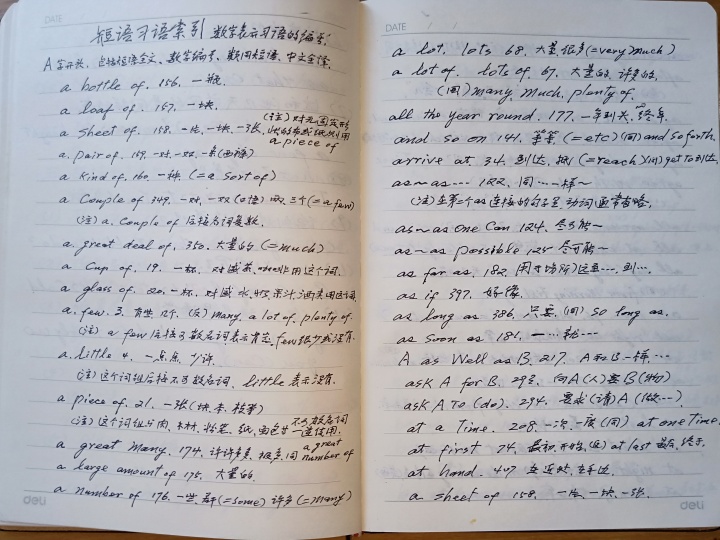 DATE
短语习语索引 数字表示习语的编号.
A字开头, 包括短语全文、数字编号、斯用短语、中文全译.
a bottle of. 156. 一瓶.
a loaf of. 157. 一块.
a sheet of. 158. 一片、一块、一张. (注) 对无固定形
状的布或纸则用
a piece of
a. pair of. 159. 一对、一双、一条(西裤)
a kind of. 160. 一种. (= a sort of)
a Couple of 349. 一对、一双(口语) 两、三个(= a few)
(注) a. Couple of 后接名词复数.
a. great deal of. 350. 大量的 (= much)
a Cup of. 19. 一杯. 对盛茶、用这个词.
a glass of. 20. 一杯. 对盛水、果汁、酒类用这词
a. few. 3. 有些 几个. (反) many. a lot of. plenty of.
(注) a few 后接可数名词表示肯定. few很少或没有.
a. little 4. 一点点 少许.
(注) 这个词组后接不可数名词. little 表示没有.
a piece of 21. 一张(块.条.枝等)
(注) 这个词组与肉、木材、粉笔、纸、面包等不可数名词
一连使用.
a great many. 174. 许许多多 极多 同 a great
number of
a large amount of 175. 大量的.
a number of 176. 一些. 若干(= some) 许多 (= many)
deli
DATE
a lot. lots 68. 大量 很多(= very much)
a lot of. lots of. 67. 大量的. 许多的.
(同) many. much. plenty of.
all the year round. 177. 一年到头. 终年.
and so on 141. 等等 (= etc) (同) and so forth.
arrive at. 34. 到达. 抵 (= reach) (同) get to 到达.
as~as… 122. 同…一样~
(注) 在第二个as连接的句子里, 动词通常省略.
as~as one Can 124. 尽可能~
as~as possible 125 尽可能~
as far as. 182. (用于场所) 远至…. 到….
as if 397. 好像.
as long as 386. 只要. (同) so long as.
as soon as 181. 一…就…
A as Well as B. 217. A和B一样….
ask A for B. 293. 向A(人)要B(物)
ask A To (do). 294. 要求(请)A (做…).
at a Time. 208. 一次. 一度 (同) at one time.
at first 74. 最初. 开始. (反) at last 最后. 终于.
at hand. 447 在近处. 在手边.
a sheet of 158. 一片. 一块. 一张.
deli